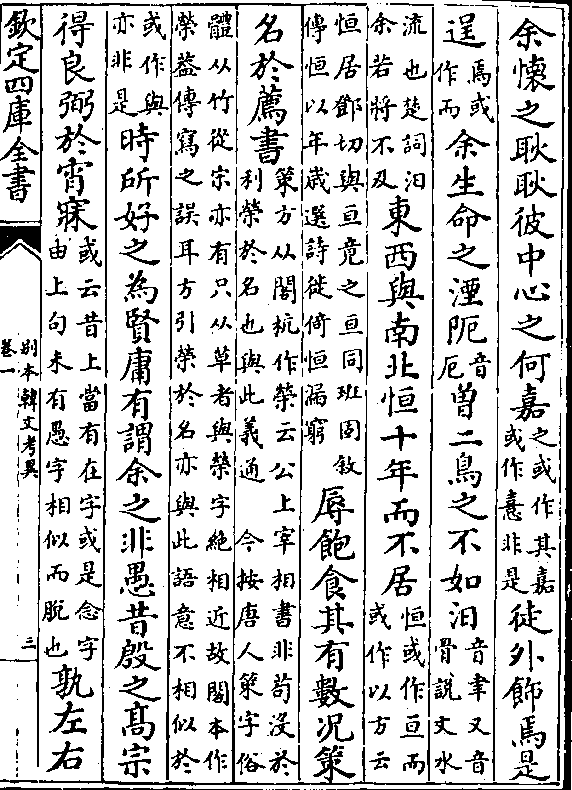 余懷之耿耿彼中心之何嘉之或作其嘉或作憙非是徒外飾焉是
逞焉或作而余生命之湮阨音厄曽二鳥之不如汨音聿又音骨説文水
流也楚詞汨余若將不及東西與南北恒十年而不居恒或作亘而或作以方云
恒居鄧切與亘竟之亘同班固敘傳恒以年歲選詩徙倚恒漏窮辱飽食其有數况策
名於薦書策方从閣杭作榮云公上宰相書非苟没於利榮於名也與此義通 今按唐人策字俗
體从竹從宗亦有只从草者與榮字絶相近故閣本作榮葢傳寫之誤耳方引榮於名亦與此語意不相似於
或作與亦非是時所好之為賢庸有謂余之非愚昔殷之髙宗
得良弼於宵寐或云昔上當有在字或是念字由上句末有愚字相似而脱也孰左右
欽定四庫全書
別本韓文考異
卷一
三